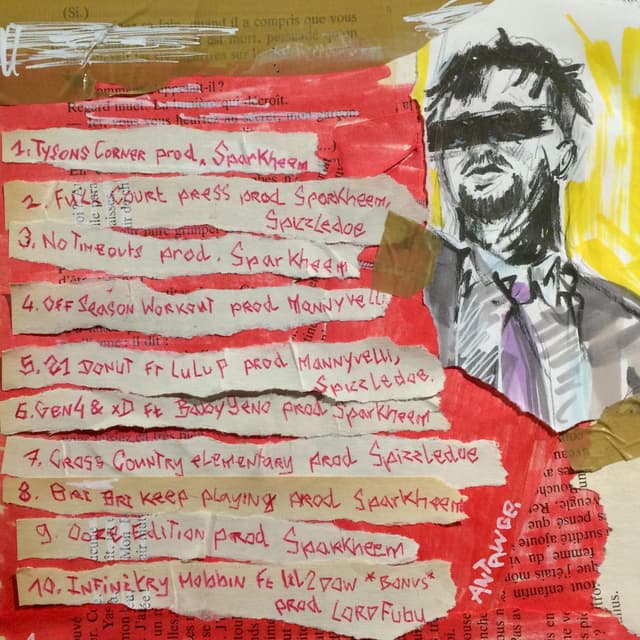 (Si.)
loin, quand il a compris que vous
est mort, persuadé qu'on
Regard muet. La lumière qui décroît.
1. Tysons Corner prod. Sparkheem
2. Full Court press prod Sparkheem,
Spizzledoe
3. No Timeouts prod. Sparkheem
4. Off Season Workout prod Mannyvelli
5. 21 Donut ft LuLu P prod Mannyvelli,
Spizzledoe.
6. Gen4 & xD ft BabyYeno prod Sparkheem
7. Cross Country elementary prod Spizzledoe
8. Bri Bri keep playing prod Sparkheem
9. prod Sparkheem
10. Mobbin ft Lil 2 Dow *Bonus*
prod LordFubu